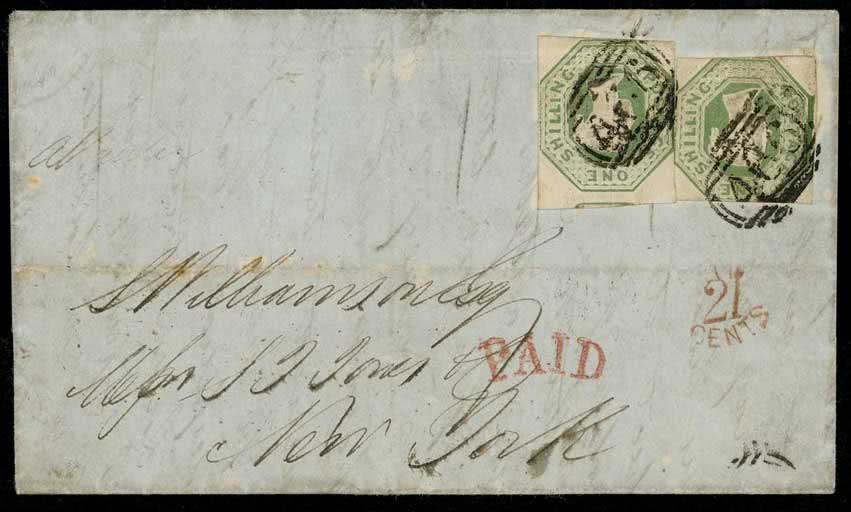 SHILLING
ONE
SHILLING
S Williamson Esq
Messrs S T Jones & Co
New York
PAID
21
CENTS